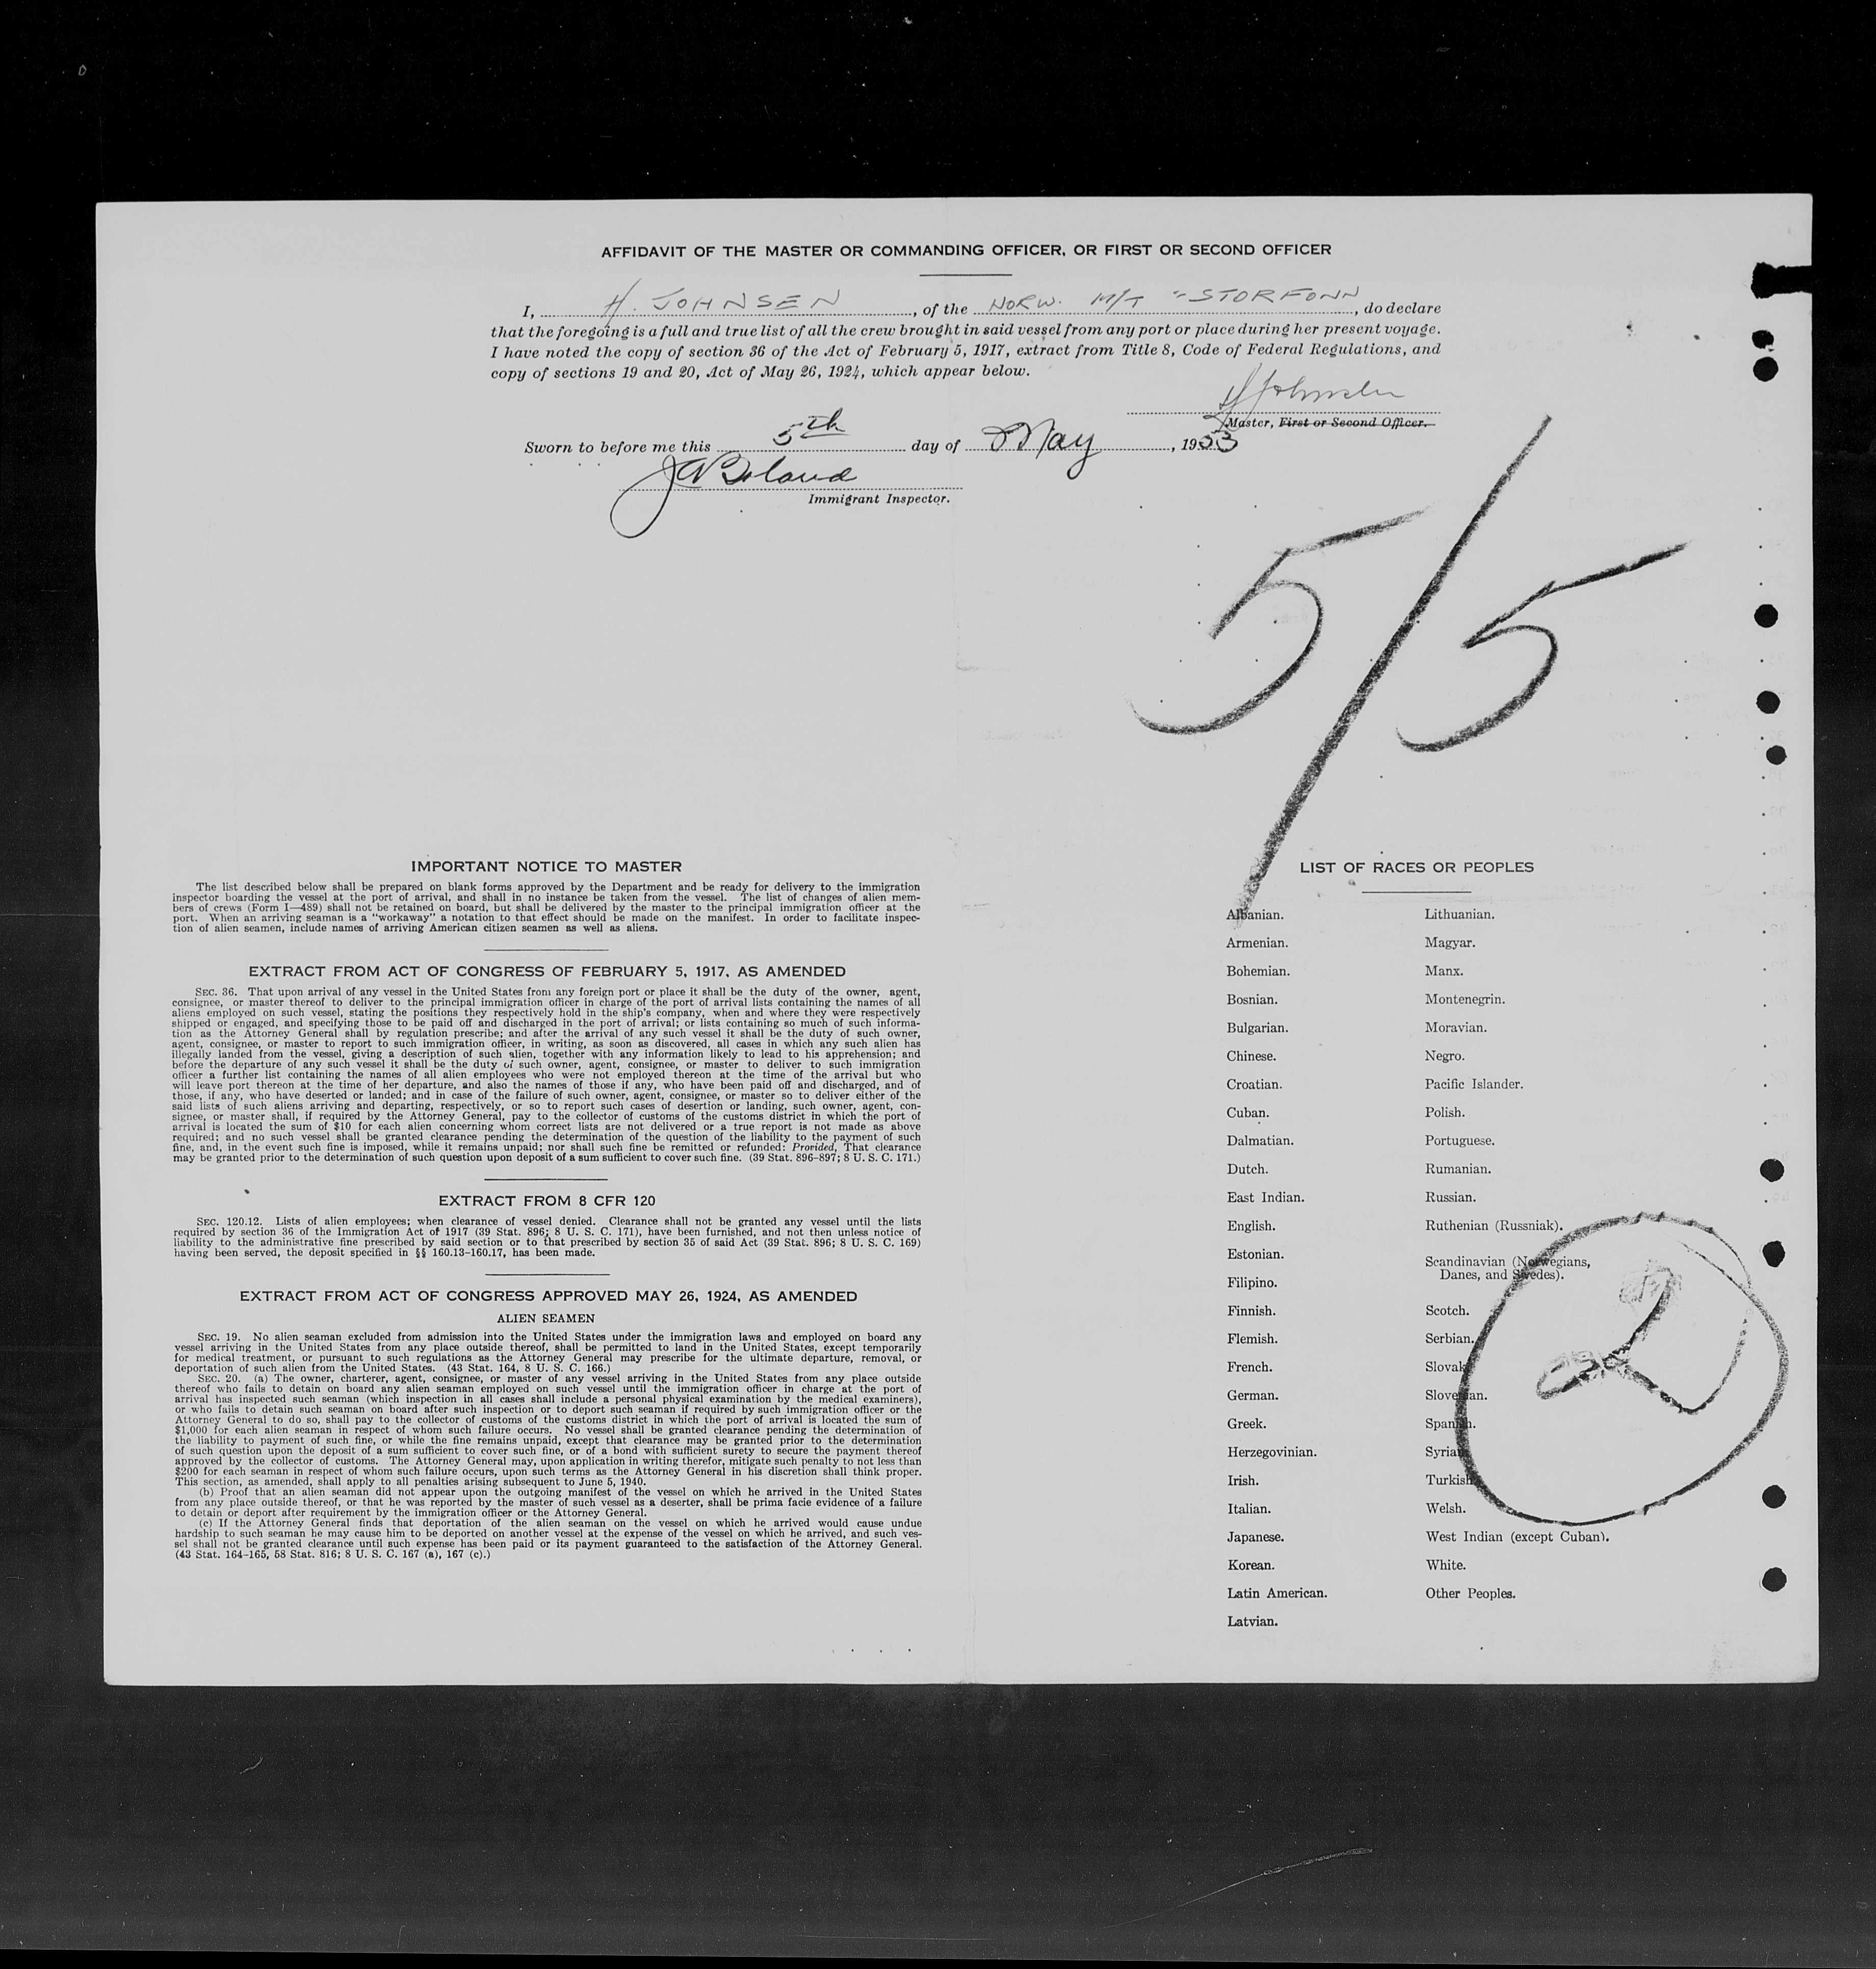 AFFIDAVIT OF THE MASTER OR COMMANDING OFFICER, OR FIRST OR SECOND OFFICER
I, H. JOHNSEN, of the NORW. M/T "STORFONN, do declare
that the foregoing is a full and true list of all the crew brought in said vessel from any port or place during her present voyage.
I have noted the copy of section 36 of the Act of February 5, 1917, extract from Title 8, Code of Federal Regulations, and
copy of sections 19 and 20, Act of May 26, 1924, which appear below.
H Johnsen
Master, First or Second Officer.
Sworn to before me this 5th day of May, 1953
Immigrant Inspector.
5/5
IMPORTANT NOTICE TO MASTER
The list described below shall be prepared on blank forms approved by the Department and be ready for delivery to the immigration
inspector boarding the vessel at the port of arrival, and shall in no instance be taken from the vessel. The list of changes of alien mem-
bers of crews (Form I—489) shall not be retained on board, but shall be delivered by the master to the principal immigration officer at the
port. When an arriving seaman is a "workaway" a notation to that effect should be made on the manifest. In order to facilitate inspec-
tion of alien seamen, include names of arriving American citizen seamen as well as aliens.
EXTRACT FROM ACT OF CONGRESS OF FEBRUARY 5, 1917, AS AMENDED
SEC. 36. That upon arrival of any vessel in the United States from any foreign port or place it shall be the duty of the owner, agent,
consignee, or master thereof to deliver to the principal immigration officer in charge of the port of arrival lists containing the names of all
aliens employed on such vessel, stating the positions they respectively hold in the ship's company, when and where they were respectively
shipped or engaged, and specifying those to be paid off and discharged in the port of arrival; or lists containing so much of such informa-
tion as the Attorney General shall by regulation prescribe; and after the arrival of any such vessel it shall be the duty of such owner,
agent, consignee, or master to report to such immigration officer, in writing, as soon as discovered, all cases in which any such alien has
illegally landed from the vessel, giving a description of such alien, together with any information likely to lead to his apprehension; and
before the departure of any such vessel it shall be the duty of such owner, agent, consignee, or master to deliver to such immigration
officer a further list containing the names of all alien employees who were not employed thereon at the time of the arrival but who
will leave port thereon at the time of her departure, and also the names of those if any, who have been paid off and discharged, and of
those, if any, who have deserted or landed; and in case of the failure of such owner, agent, consignee, or master so to deliver either of the
said lists of such aliens arriving and departing, respectively, or so to report such cases of desertion or landing, such owner, agent, con-
signee, or master shall, if required by the Attorney General, pay to the collector of customs of the customs district in which the port of
arrival is located the sum of $10 for each alien concerning whom correct lists are not delivered or a true report is not made as above
required; and no such vessel shall be granted clearance pending the determination of the question of the liability to the payment of such
fine, and, in the event such fine is imposed, while it remains unpaid; nor shall such fine be remitted or refunded: Provided, That clearance
may be granted prior to the determination of such question upon deposit of a sum sufficient to cover such fine. (39 Stat. 896-897; 8 U. S. C. 171.)
EXTRACT FROM 8 CFR 120
SEC. 120.12. Lists of alien employees; when clearance of vessel denied. Clearance shall not be granted any vessel until the lists
required by section 36 of the Immigration Act of 1917 (39 Stat. 896; 8 U. S. C. 171), have been furnished, and not then unless notice of
liability to the administrative fine prescribed by said section or to that prescribed by section 35 of said Act (39 Stat. 896; 8 U. S. C. 169)
having been served, the deposit specified in §§ 160.13-160.17, has been made.
EXTRACT FROM ACT OF CONGRESS APPROVED MAY 26, 1924, AS AMENDED
ALIEN SEAMEN
SEC. 19. No alien seaman excluded from admission into the United States under the immigration laws and employed on board any
vessel arriving in the United States from any place outside thereof, shall be permitted to land in the United States, except temporarily
for medical treatment, or pursuant to such regulations as the Attorney General may prescribe for the ultimate departure, removal, or
deportation of such alien from the United States. (43 Stat. 164, 8 U. S. C. 166.)
SEC. 20. (a) The owner, charterer, agent, consignee, or master of any vessel arriving in the United States from any place outside
thereof who fails to detain on board any alien seaman employed on such vessel until the immigration officer in charge at the port of
arrival has inspected such seaman (which inspection in all cases shall include a personal physical examination by the medical examiners),
or who fails to detain such seaman on board after such inspection or to deport such seaman if required by such immigration officer or the
Attorney General to do so, shall pay to the collector of customs of the customs district in which the port of arrival is located the sum of
$1,000 for each alien seaman in respect of whom such failure occurs. No vessel shall be granted clearance pending the determination of
the liability to payment of such fine, or while the fine remains unpaid, except that clearance may be granted prior to the determination
of such question upon the deposit of a sum sufficient to cover such fine, or of a bond with sufficient surety to secure the payment thereof
approved by the collector of customs. The Attorney General may, upon application in writing therefor, mitigate such penalty to not less than
$200 for each seaman in respect of whom such failure occurs, upon such terms as the Attorney General in his discretion shall think proper.
This section, as amended, shall apply to all penalties arising subsequent to June 5, 1940.
(b) Proof that an alien seaman did not appear upon the outgoing manifest of the vessel on which he arrived in the United States
from any place outside thereof, or that he was reported by the master of such vessel as a deserter, shall be prima facie evidence of a failure
to detain or deport after requirement by the immigration officer or the Attorney General.
(c) If the Attorney General finds that deportation of the alien seaman on the vessel on which he arrived would cause undue
hardship to such seaman he may cause him to be deported on another vessel at the expense of the vessel on which he arrived, and such ves-
sel shall not be granted clearance until such expense has been paid or its payment guaranteed to the satisfaction of the Attorney General.
(43 Stat. 164-165, 58 Stat. 816; 8 U. S. C. 167 (a), 167 (c).)
LIST OF RACES OR PEOPLES
Albanian.
Armenian.
Bohemian.
Bosnian.
Bulgarian.
Chinese.
Croatian.
Cuban.
Dalmatian.
Dutch.
East Indian.
English.
Estonian.
Filipino.
Finnish.
Flemish.
French.
German.
Greek.
Herzegovinian.
Irish.
Italian.
Japanese.
Korean.
Latin American.
Latvian.
Lithuanian.
Magyar.
Manx.
Montenegrin.
Moravian.
Negro.
Pacific Islander.
Polish.
Portuguese.
Rumanian.
Russian.
Ruthenian (Russniak).
Scandinavian (Norwegians,
Danes, and Swedes).
Scotch.
Serbian.
Slovak.
Slovenian.
Spanish.
Syrian.
Turkish.
Welsh.
West Indian (except Cuban).
White.
Other Peoples.